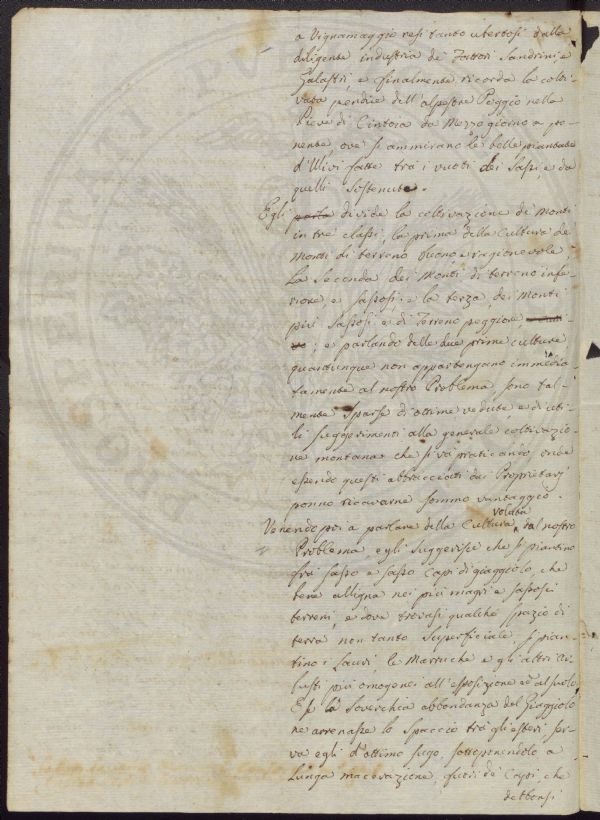 a Vignamaggio resi tanto ubertosi dalla
diligente industria de' Fattori Sandrini, e
Galastri, e finalmente ricorda la colti-
vata pendice dell'alpestre Poggio nella
Pieve di Cintoia da Mezzogiorno a po-
nente, ove si ammirano le belle piantate
d'Ulivi fatte trà i vuoti dei Sassi, e da
quelli sostenute.
Egli parla divide la coltivazione de' Monti
in tre classi, la prima della Cultura de'
Monti di terreno buono, e ragionevole;
La Seconda dei Monti di terreno infe-
riore, e sassosi; e la terza dei Monti
più sassosi e di Terreno peggiore
; e parlando delle due prime culture
quantunque non appartengano immedia-
tamente al nostro Problema sono tal-
mente sparse di ottime vedute, e di uti-
li suggerimenti alla generale coltivazio-
ne montana che si và praticando, onde
essendo questi abbracciati dai Proprietarj
ponno ricavarne sommo vantaggio.
Venendo poi a parlare della Cultura voluta dal nostro
Problema, egli suggerisce che si piantino
frà sasso e sasso Capi di giaggiolo, che
bene alligna nei più magri e sassosi
terreni, e dove trovasi qualche spazio di
terra non tanto superficiale, si pian-
tino i Lauri, le Marruche e gli altri Ar-
busti più omogenei all'esposizione ed al suolo,
E se la Soverchia abbondanza del Giaggiolo
ne arrenasse lo spaccio trà gli esteri ser-
va egli d'ottimo sugo, sottoponendolo a
Lunga macerazione, fuori de' Capi, che
debbonsi